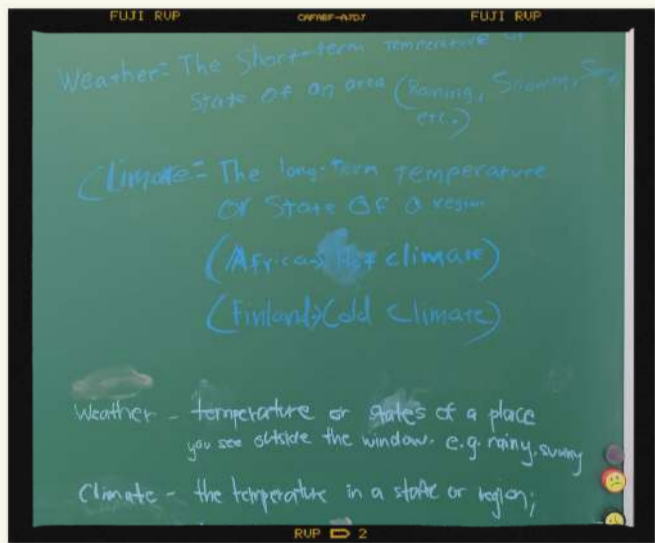 FUJI RVP
FUJI RVP
Weather = The short-term temperature or
State of an area (Raining, Snowing,
etc.)
Climate = The long-term temperature
or State Of a region
(Africa → Hot climate)
(Finland → Cold Climate)
Weather - temperature or states of a place
you see outside the window. e.g. rainy, sunny
Climate - the temperature in a state or region;
RVP 2